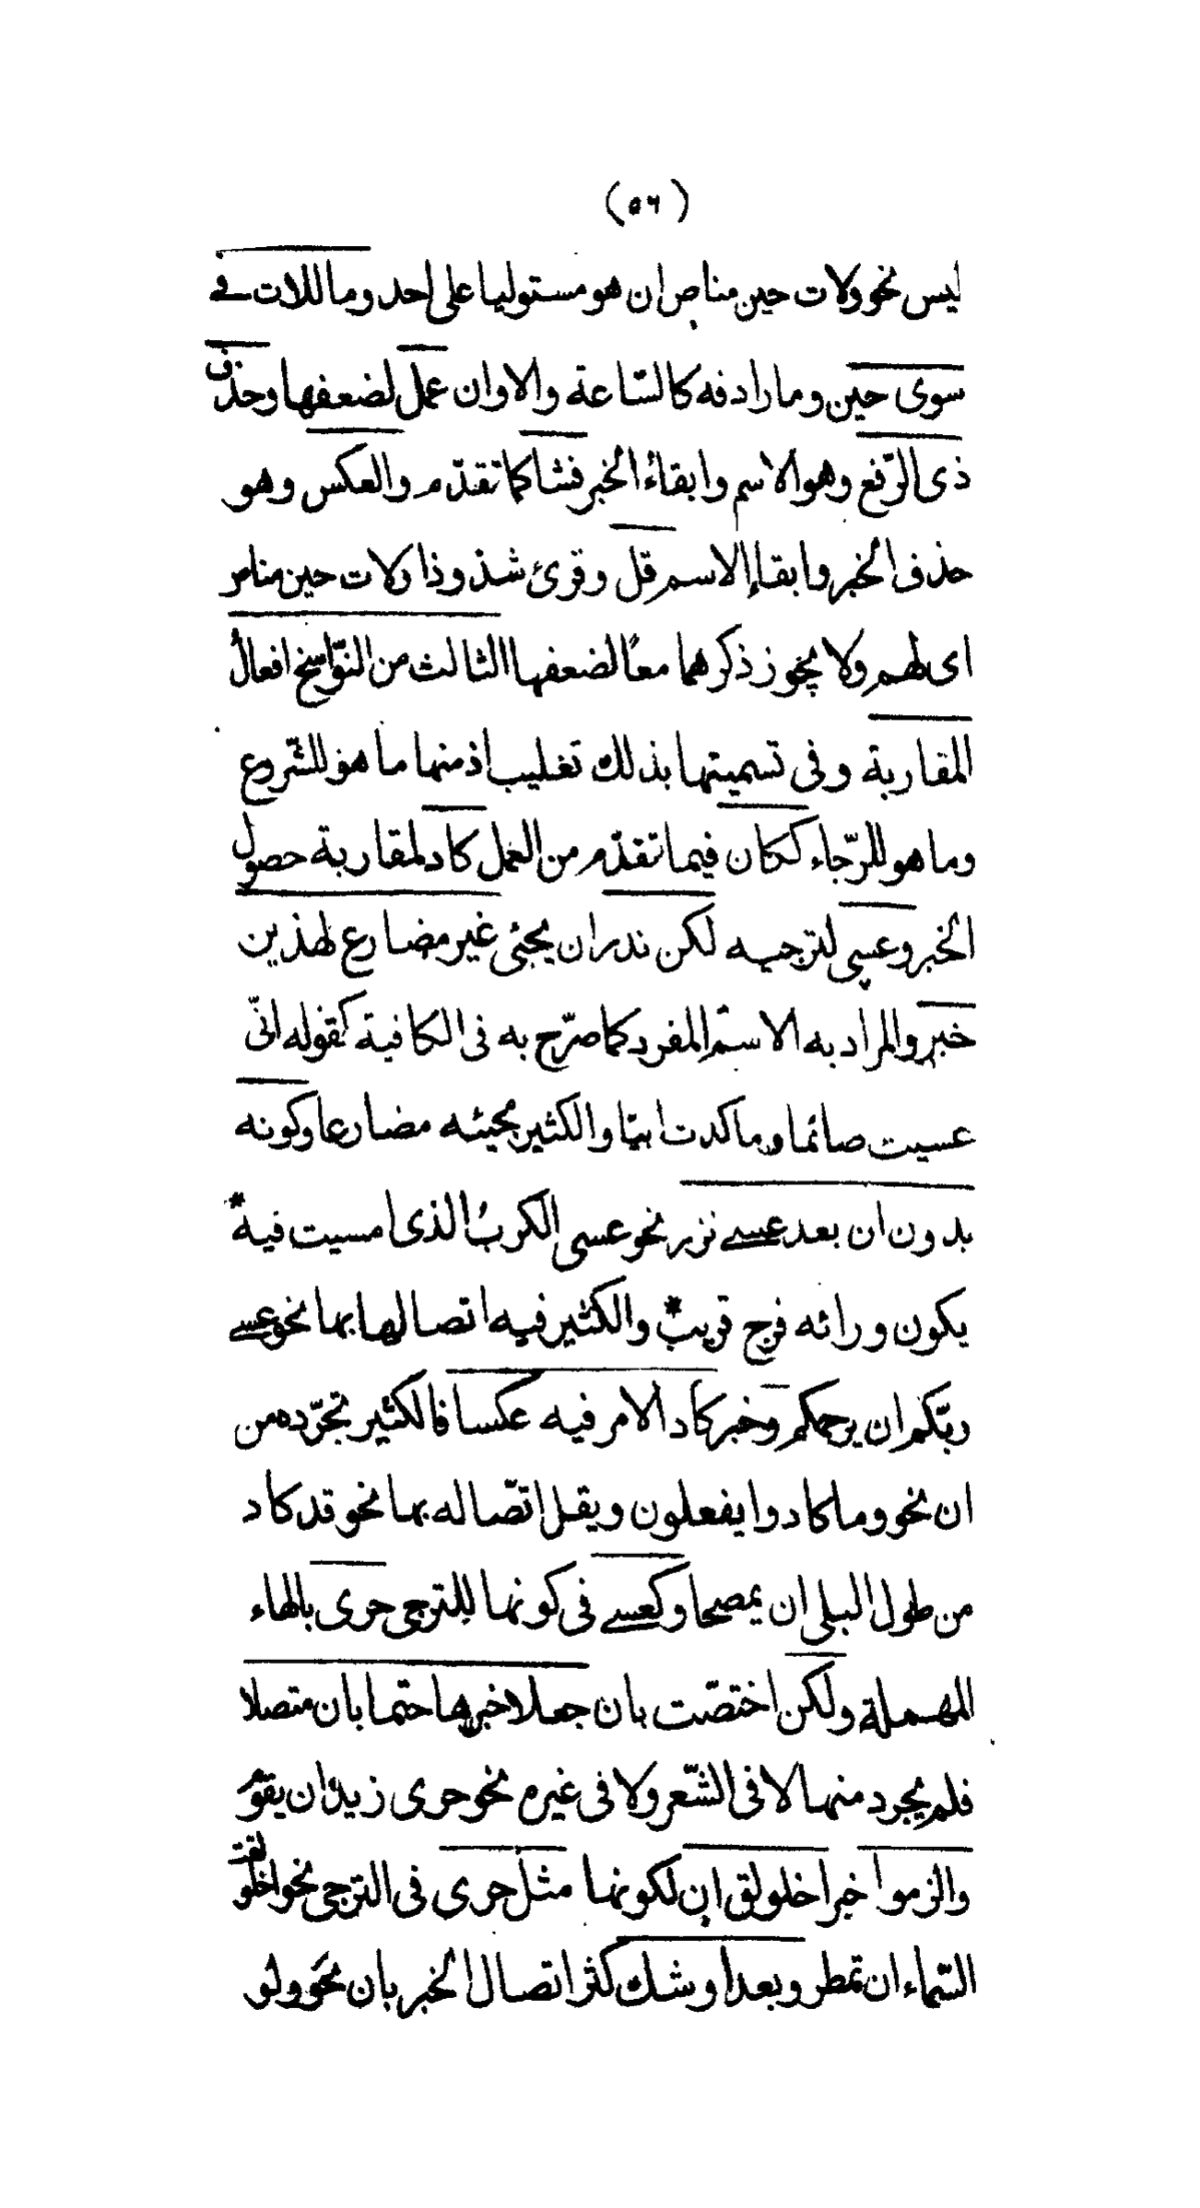 (٥٦)
ليس نحو ولات حين مناص ان هو مستوليا على احد وما للات فے
سوى حين وما رادفه كالسّاعة والاوان عمل لضعفها وحذف
ذى الرّفع وهو الاسم وابقاءُ الخبر فشا كما تقدّم والعكس وهو
حذف الخبر وابقاء الاسم قل وقرئ شذوذا ولات حين مناص
اى لهم ولا يجوز ذكرهما معًا لضعفها الثالث من النّواسخ افعالُ
المقاربة وفى تسميتها بذلك تغليب اذ منها ما هو للشّروع
وما هو للرّجاء ككان فيما تقدّم من العمل كاد لمقاربة حصول
الخبر وعسى لترجيه لكن ندر ان يجئى غير مضارع لهذين
خبر والمراد به الاسم المفرد كما صرّح به فى الكافية كقوله انّى
عسيت صائما وما كدت ائبا والكثير مجيئه مضارعا وكونه
بدون ان بعد عسے نزر نحو عسى الكربُ الذى امسيت فيه *
يكون ورائه فرج قريبٌ * والكثير فيه اتصالها بها نحو عسے
ربّكم ان يرحمكم وخبر كاد الامر فيه عكسا فالكثير تجرّده من
ان نحو وما كادوا يفعلون ويقل اتّصاله بها نحو قد كاد
من طول البلى ان يمصحا وكعسے فى كونها للترجى حرى بالهاء
المهملة ولكن اختصّت بان جعلا خبرها حتما بان متصلا
فلم يجرد منها لا فى الشّعر ولا فى غيره نحو حرى زيد ان يقوم
والزموا خبر اخلولق ان لكونها مثل حرى فى الترجى نحو اخلولقت
السّماء ان تمطر وبعد اوشك كثر اتصال الخبر بان نحو ولو